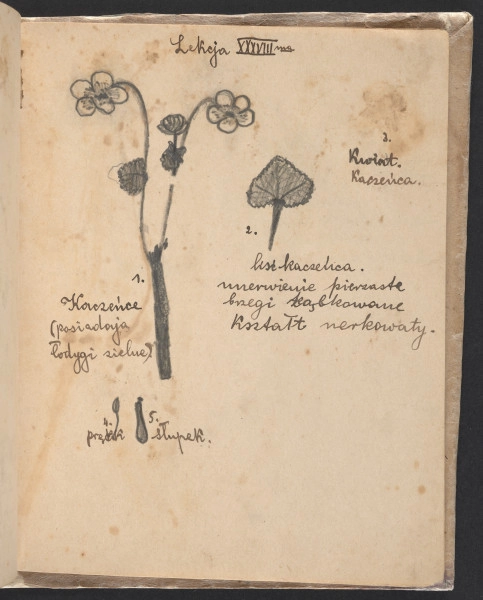 Lekcja XXXVIII ma
3.
Kwiat.
Kaczeńca.
2.
liść kaczeńca.
unerwienie pierzaste
brzegi ząbkowane
Kształt nerkowaty.
1.
Kaczeńce
(posiadają
łodygi zielne)
4.
pręcik
5.
słupek.